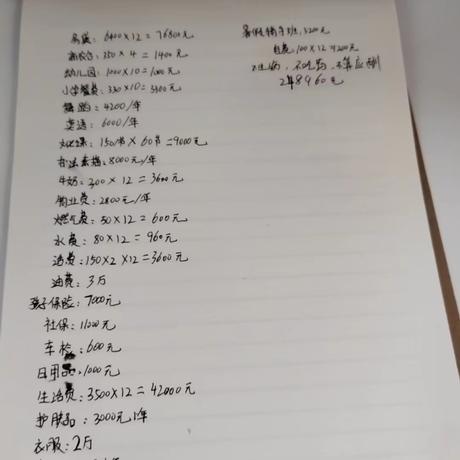 房贷：6400×12=76800元
350×4=1400元
幼儿园：1000×10=1000元
小学餐费：330×10=3300元
舞蹈：4200/年
英语：6000/年
150/节×60节=9000元
书法素描：8000元/年
牛奶：300×12=3600元
物业费：2800元/年
燃气费：50×12=600元
水费：80×12=960元
话费：150×2×12=3600元
油费：3万
孩子保险：7000元
社保：11000元
车检：600元
日用品：1000元
生活费：3500×12=42000元
护肤品：3000元/年
衣服：2万
暑假辅导班：3200元
电费：100×12=1200元
不生病，不吃药，不算应酬
248960元